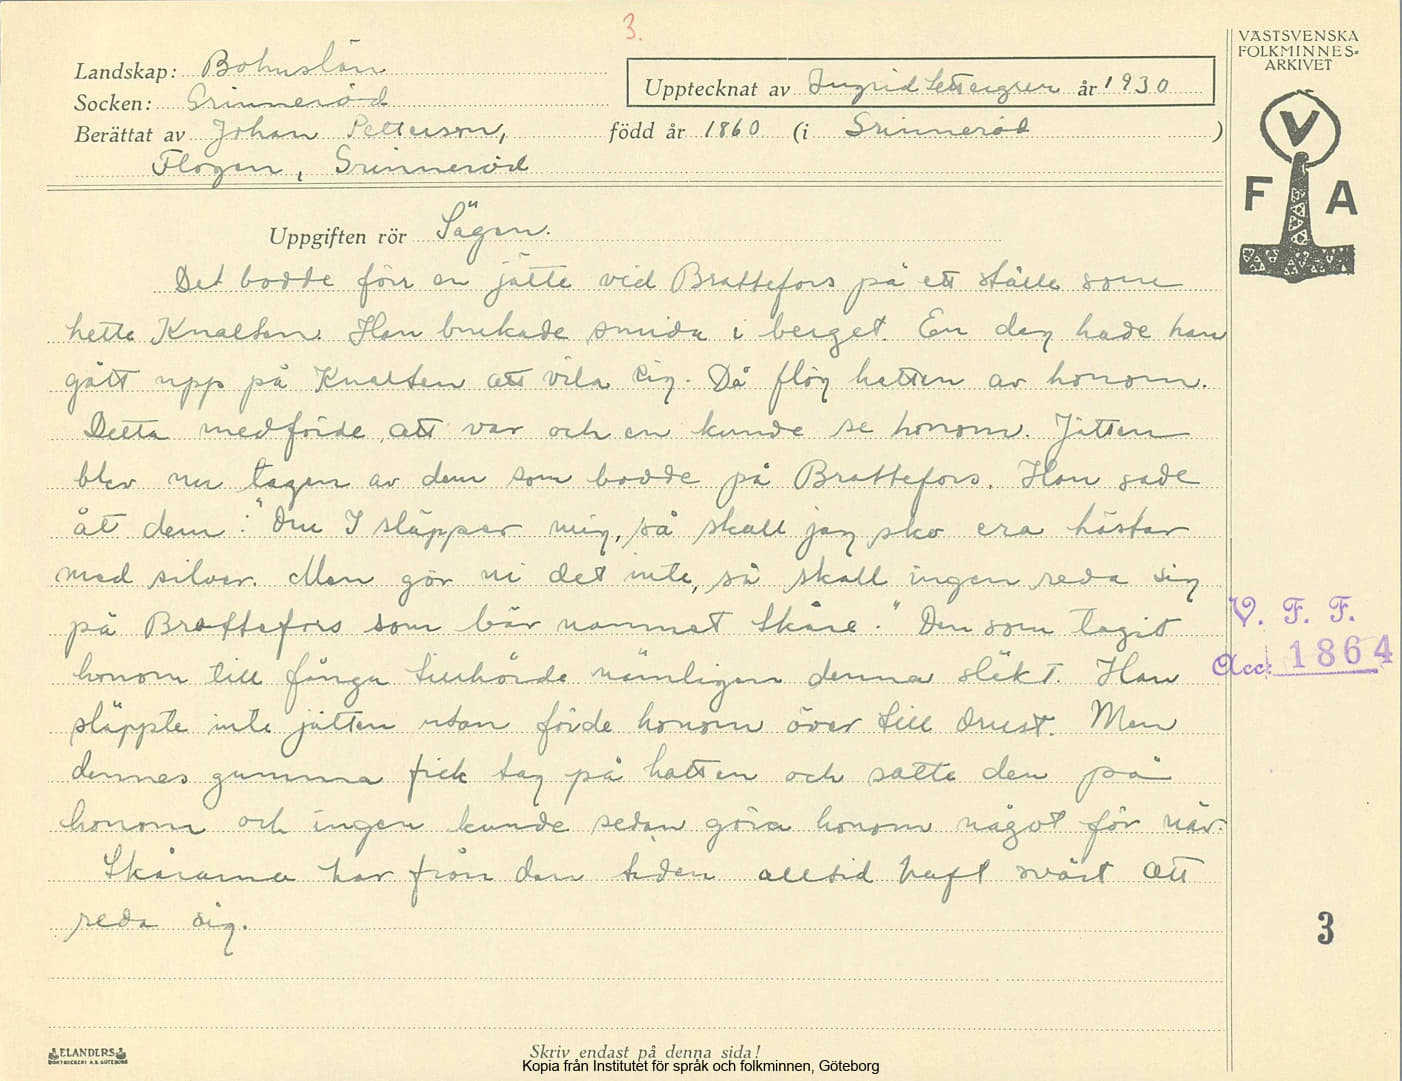 3.
VÄSTSVENSKA
FOLKMINNES-
ARKIVET
Landskap: Bohuslän
Upptecknat av Ingrid Settergren år 1930
Socken: Grinneröd
Berättat av Johan Petterson, född år 1860 (i Grinneröd )
Flogen, Grinneröd
V
F A
Uppgiften rör Sägen.
Det bodde förr en jätte vid Brattefors på ett ställe som
hette Knalten. Han brukade smida i berget. En dag hade han
gått upp på Knalten att vila sig. Då flög hatten av honom.
Detta medförde att var och en kunde se honom. Jätten
blev nu tagen av dem som bodde på Brattefors. Han sade
åt dem: "Om I släpper mig, så skall jag sko era hästar
med silver. Men gör ni det inte, så skall ingen reda sig
på Brattefors som bär namnet Skåre." Den som tagit
honom till fånga tillhörde nämligen denna släkt. Han
släppte inte jätten utan förde honom över till Orust. Men
dennes gumma fick tag på hatten och satte den på
honom och ingen kunde sedan göra honom något för när.
Skårarna har från den tiden alltid haft svårt att
reda sig.
V. F. F.
Acc: 1864
3
ELANDERS
BOKTRYCKERI A.B. GÖTEBORG
Skriv endast på denna sida!
Kopia från Institutet för språk och folkminnen, Göteborg